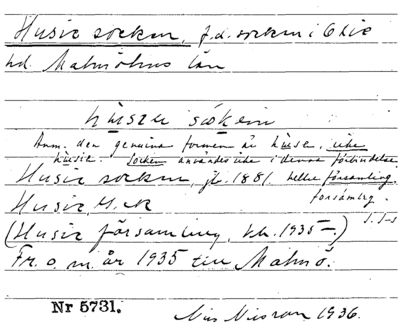 Husie socken, f.d. socken i Oxie
hd. Malmöhus län
hüsze såken
Anm. den genuina formen är hüse, icke
hüsie. Socken användes icke i denna förbindelse.
Husie socken, jb. 1881. heller församling.
församling.
Husie, G. K
(Husie församling, kb. 1935—)
Fr. o. m. år 1935 till Malmö.
Nr 5731.
1936.